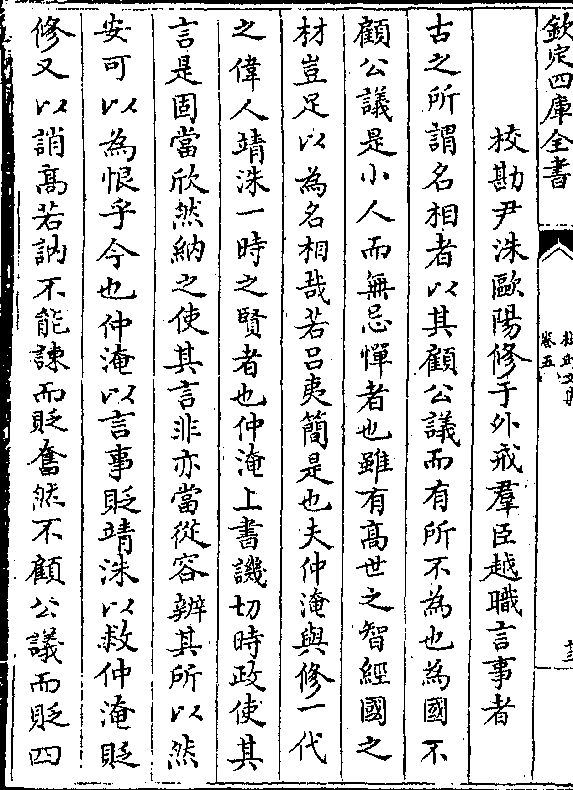 欽定四庫全書
卷五
校勘尹洙歐陽修于外戒羣臣越職言事者
古之所謂名相者以其顧公議而有所不為也為國不
顧公議是小人而無忌憚者也雖有高世之智經國之
材豈足以為名相哉若呂夷簡是也夫仲淹與修一代
之偉人靖洙一時之賢者也仲淹上書譏切時政使其
言是固當欣然納之使其言非亦當從容辨其所以然
安可以為恨乎今也仲淹以言事貶靖洙以救仲淹貶
修又以誚高若訥不能諫而貶奮然不顧公議而貶四